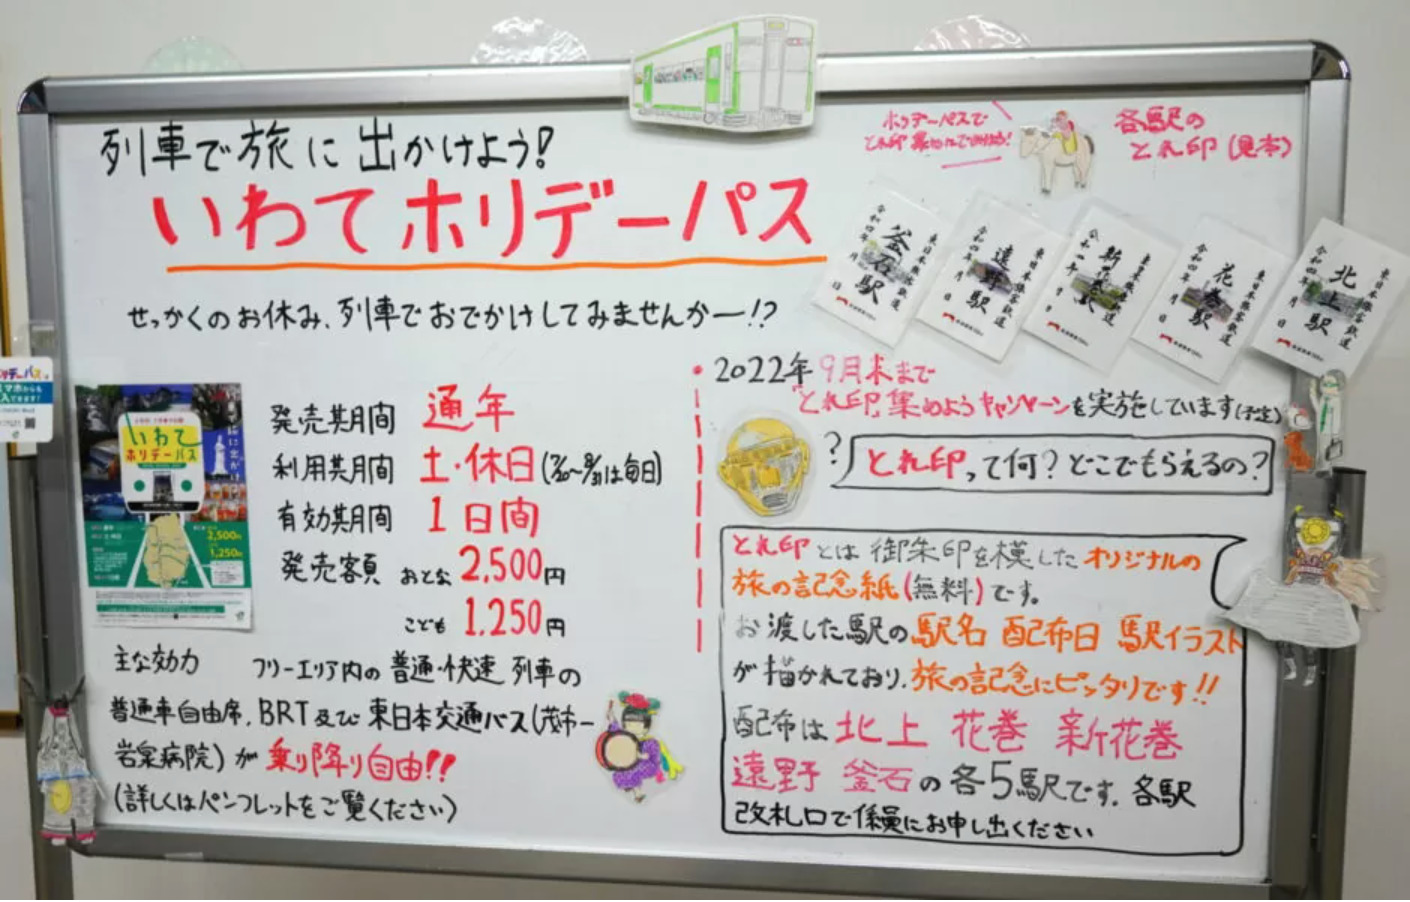 列車で旅に出かけよう!
いわてホリデーパス
せっかくのお休み、列車でおでかけしてみませんかー!?
いわて
ホリデーパス
2,500円
1,250円
発売期間 通年
利用期間 土・休日(7/20〜8/31は毎日)
有効期間 1日間
発売額 おとな 2,500円
こども 1,250円
主な効力 フリーエリア内の普通・快速列車の
普通車自由席、BRT及び東日本交通バス(茂市ー
岩泉病院)が乗り降り自由!!
(詳しくはパンフレットをご覧ください)
ホリデーパスで
とれ印
各駅の
とれ印(見本)
東日本旅客鉄道
釜石駅
令和四年 月 日
東日本旅客鉄道
遠野駅
令和四年 月 日
東日本旅客鉄道
新花巻駅
令和 年 月 日
東日本旅客鉄道
花巻駅
令和四年 月 日
東日本旅客鉄道
北上駅
令和四年 月 日
・2022年9月末まで
「とれ印」集めようキャンペーンを実施しています(予定)
?
とれ印って何?どこでもらえるの?
とれ印とは御朱印を模したオリジナルの
旅の記念紙(無料)です。
お渡しした駅の駅名 配布日 駅イラスト
が描かれており、旅の記念にピッタリです!!
配布は北上 花巻 新花巻
遠野 釜石の各5駅です。各駅
改札口で係員にお申し出ください